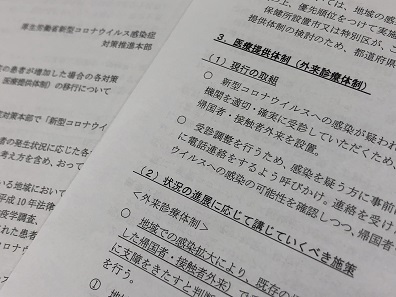 厚生労働省新型コロナウイルス感染症
対策推進本部
の患者が増加した場合の各対策
医療提供体制）の移行について
対策本部で「新型コロナウイ
者の発生状況に応じた各
考え方を含め、おって
いる地域において
平成10年法律
疫学調査、
された患者
コロナウ
は、地域の感
の上、優先順位をつけて実施
保健所設置市又は特別区が、こ
提供体制の検討のため、都道府県
3．医療提供体制（外来診療体制）
（1）現行の取組
○ 新型コロナウイルスへの感染が疑われ
機関を適切・確実に受診していただくため
帰国者・接触者外来を設置。
○ 受診調整を行うため、感染を疑う方に事前に
に電話連絡をするよう呼びかけ。連絡を受け
ウイルスへの感染の可能性を確認しつつ、帰国者
（2）状況の進展に応じて講じていくべき施策
＜外来診療体制＞
○ 地域での感染拡大により、既存の
した帰国者・接触者外来）で
に支障をきたすと判断
を行う。
① 地